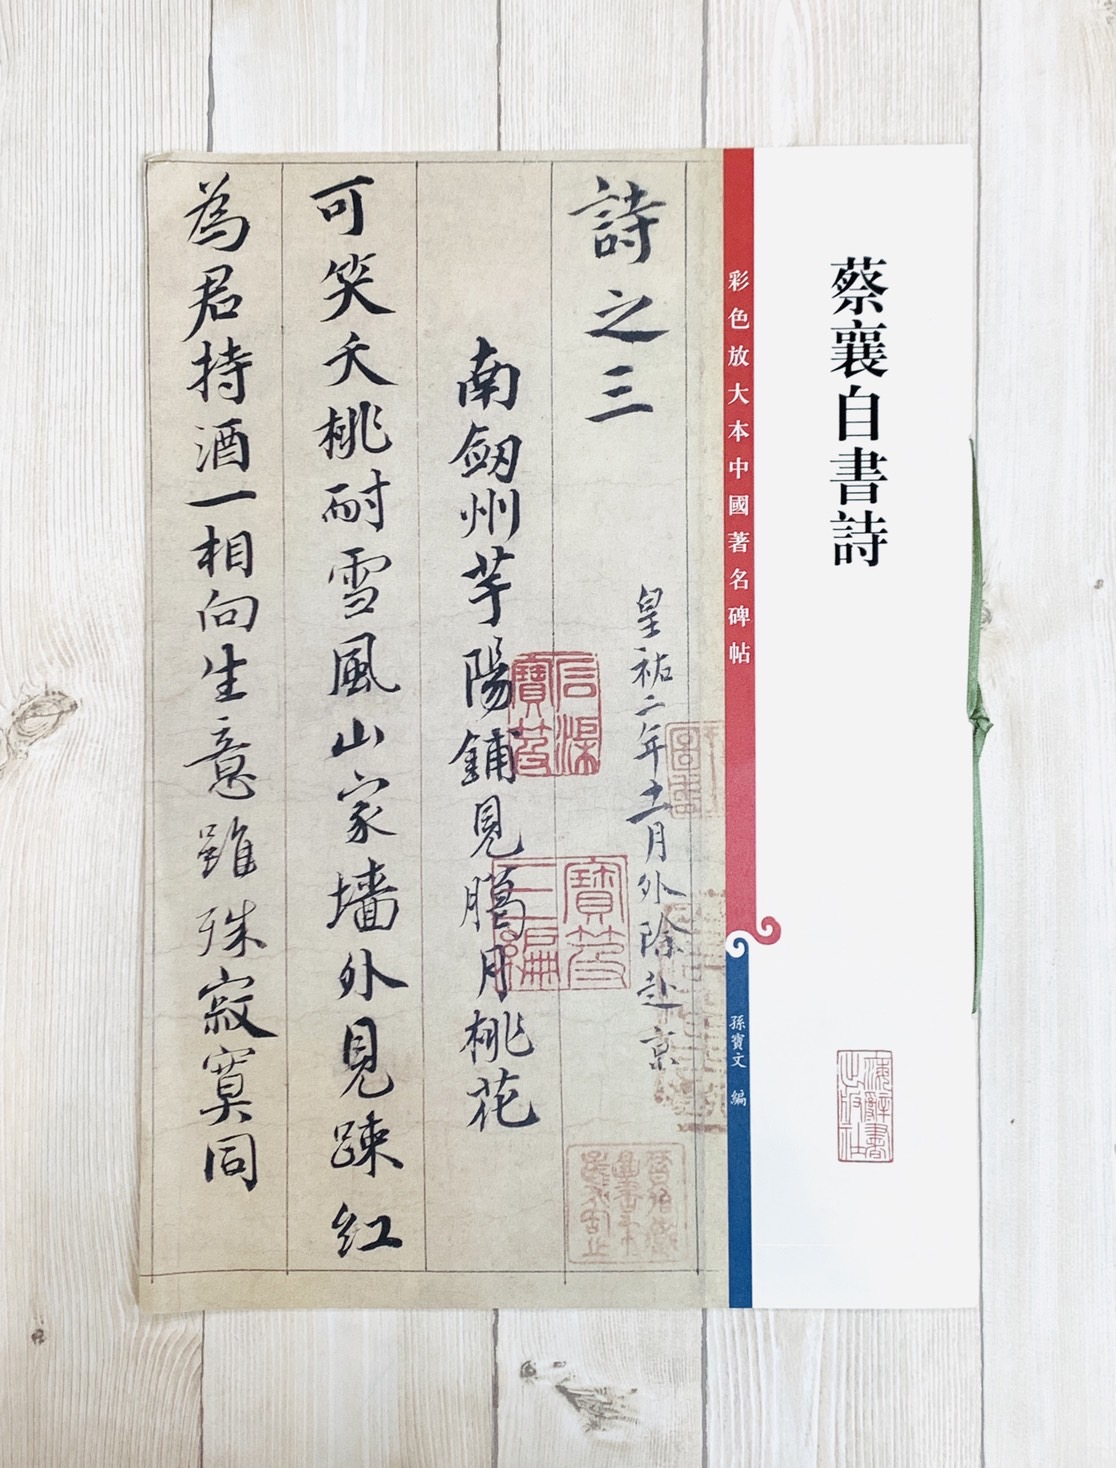 蔡襄自書詩
彩色放大本中國著名碑帖
孫寶文 編
海辭書出版社
詩之三
皇祐二年十一月外除赴京
南劒州芋陽鋪見臈月桃花
可笑夭桃耐雪風山家墻外見踈紅
為君持酒一相向生意雖殊寂寞同